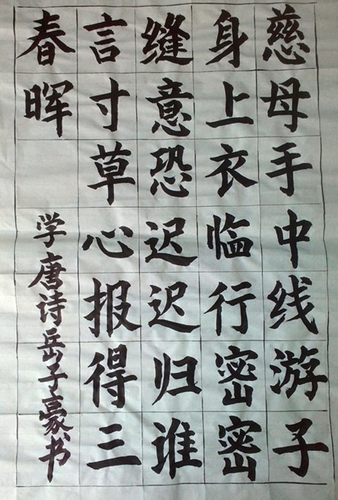 慈母手中线游子
身上衣临行密密
缝意恐迟迟归谁
言寸草心报得三
春晖
学唐诗岳子豪书